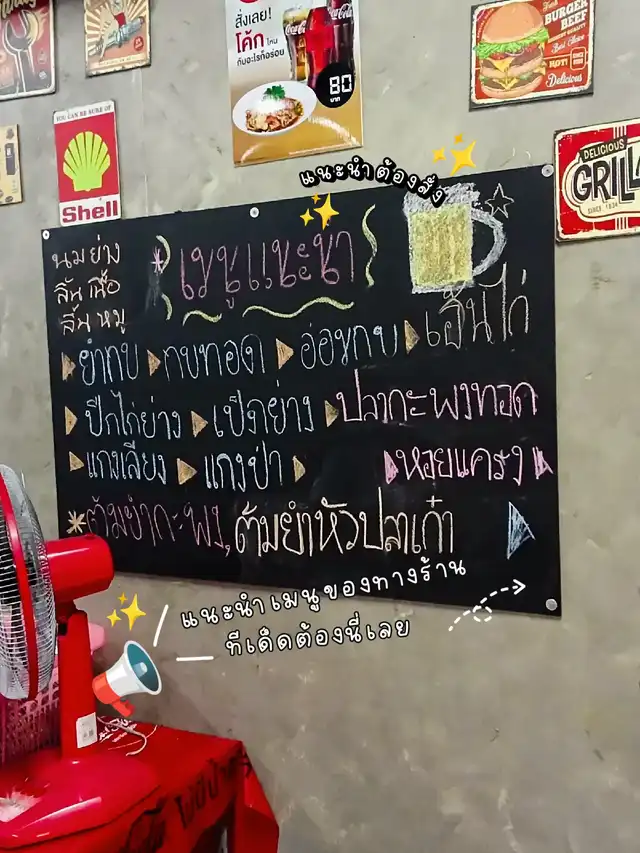 สั่งเลย!
โค้ก ไหน
กินอะไรก็อร่อย
80
บาท
Coca-Cola
Fresh
BURGER
BEEF
HOT!
Delicious
YOU CAN BE SURE OF
Shell
DELICIOUS
GRILL
SINCE 1834
แนะนำต้องสั่ง
นมย่าง
ลิ้นเนื้อ
ลิ้นหมู
เมนูแนะนำ
ยำกบ กบทอด อ่อมกบ เอ็นไก่
ปีกไก่ย่าง เป็ดย่าง ปลากะพงทอด
แกงเลียง แกงป่า หอยแครง
*ต้มยำกะพง, ต้มยำหัวปลาเก๋า
แนะนำเมนูของทางร้าน
ที่เด็ดต้องนี่เลย